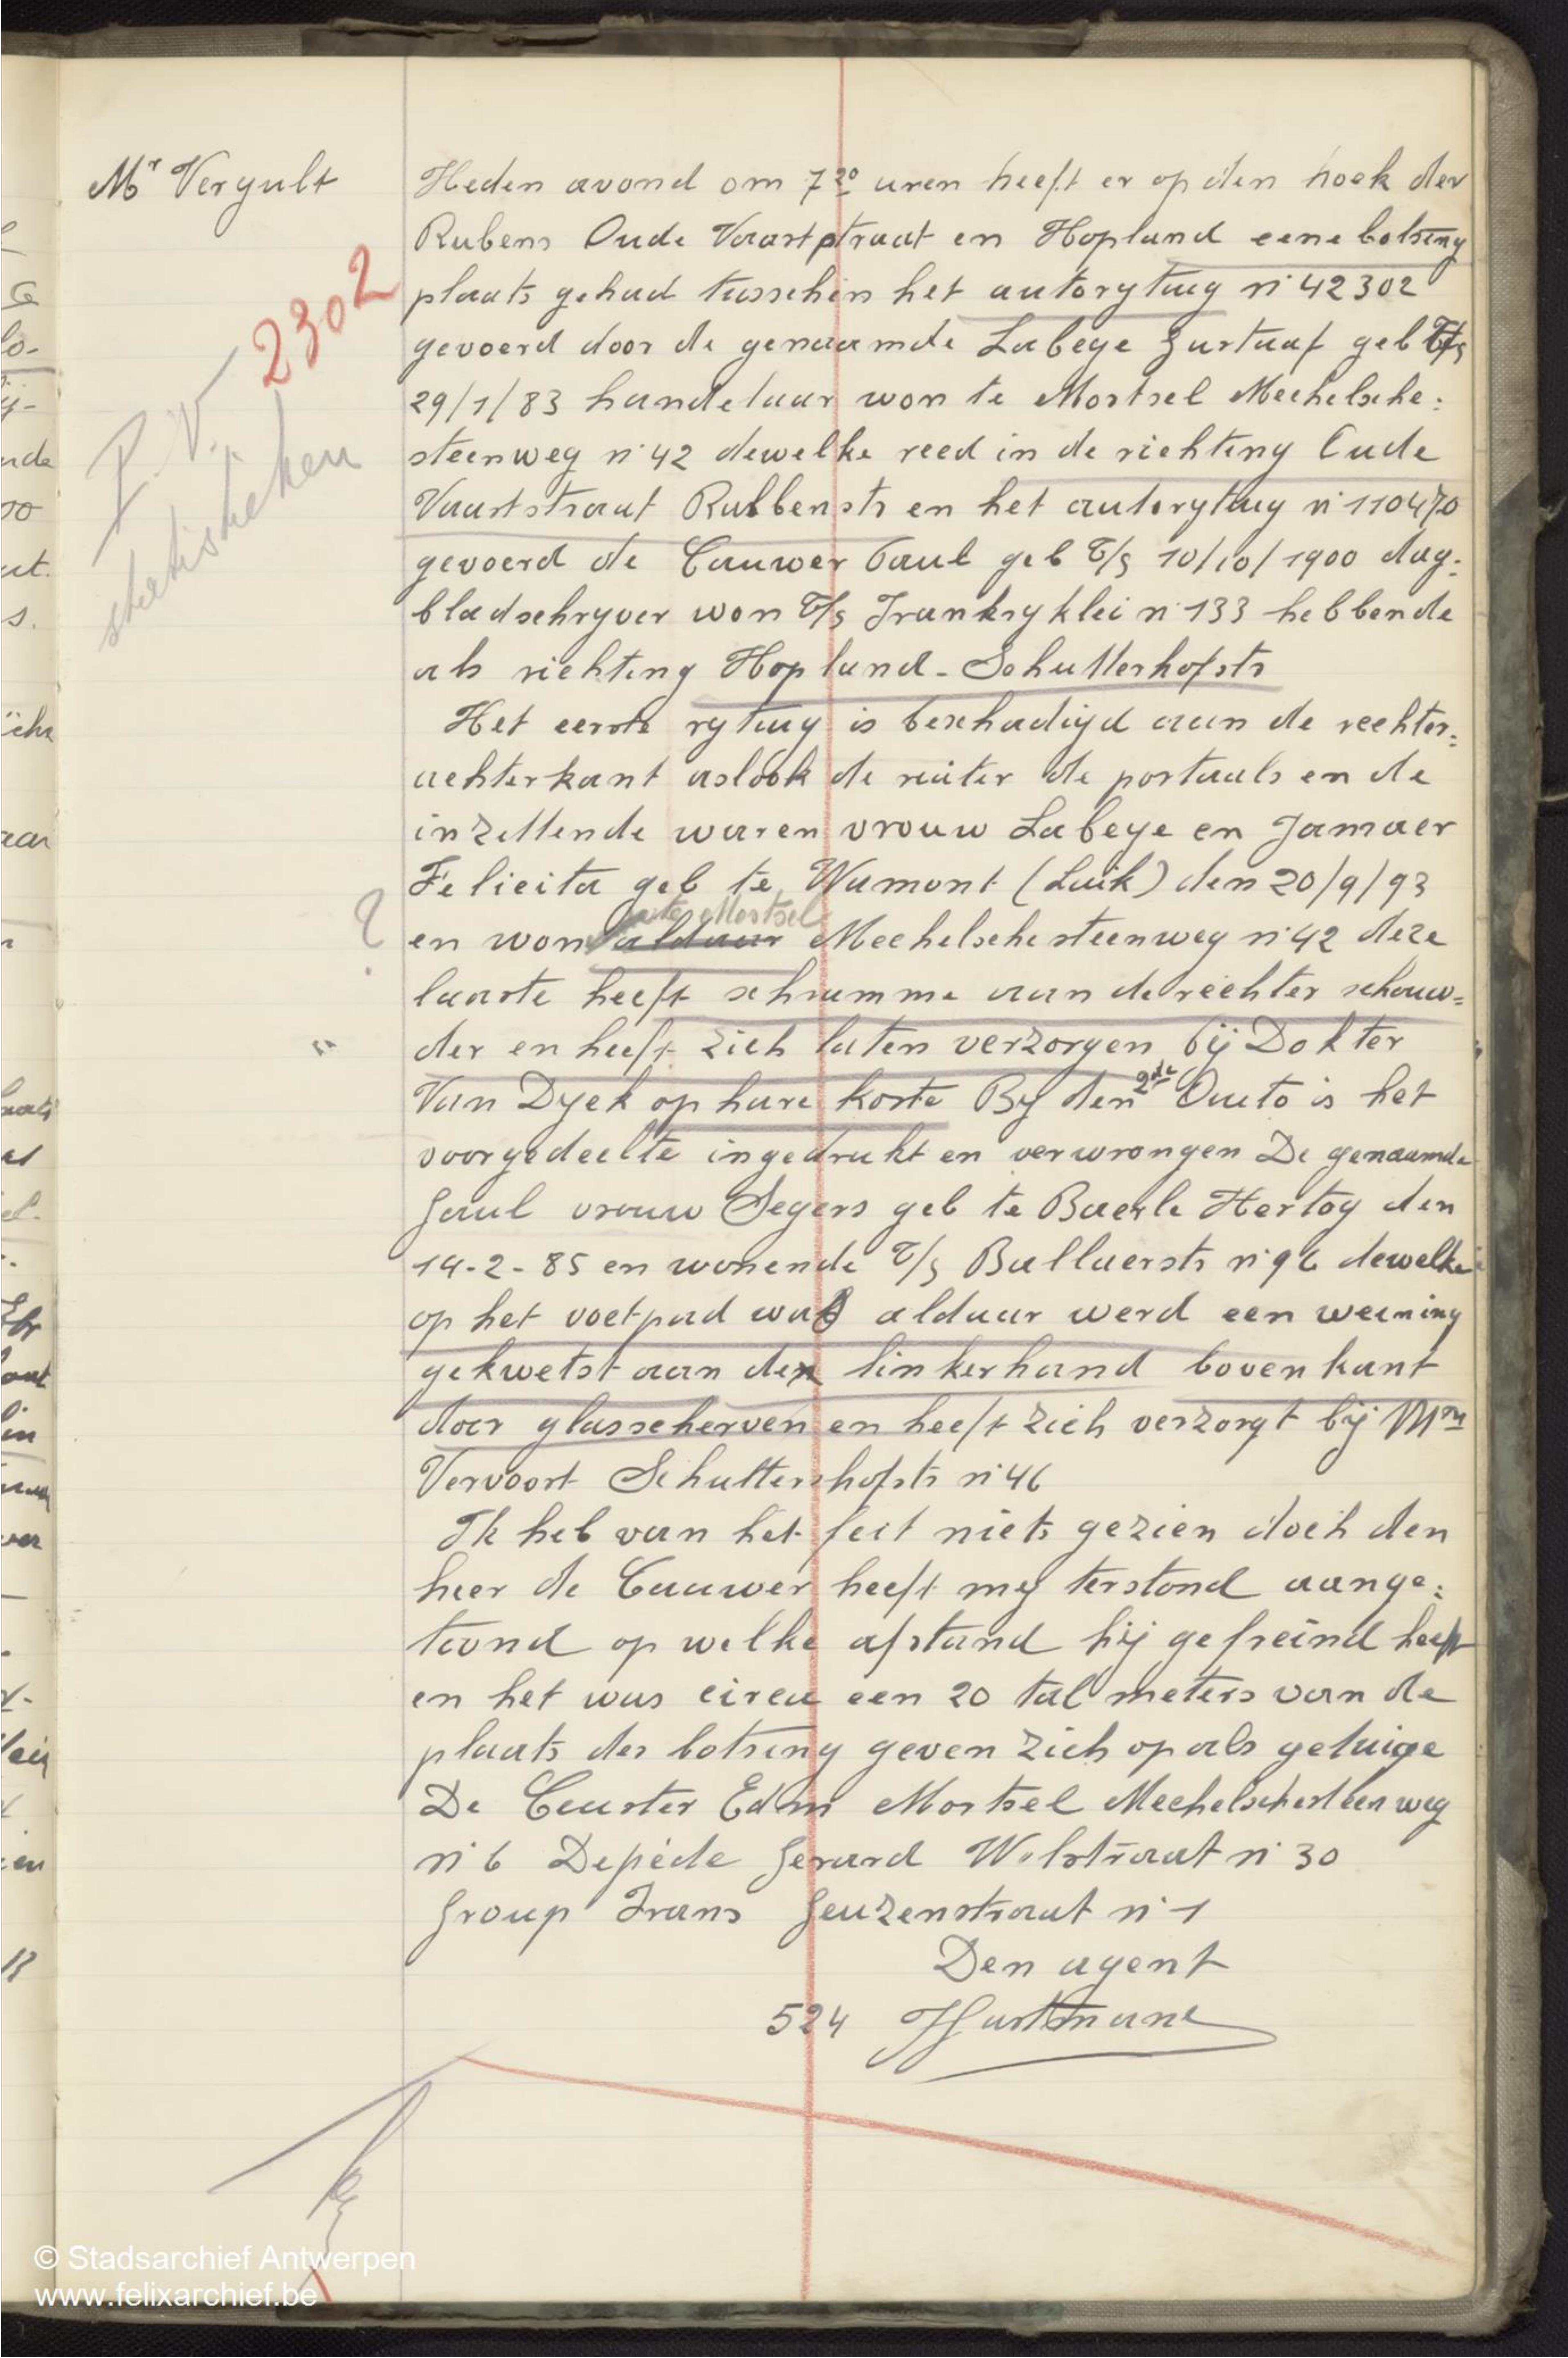 Mr Vergult
2302
P.V.
schetsteken
Heden avond om 7 20 uren heeft er op den hoek der
Rubens Oude Vaartstraat en Hopland eene botsing
plaats gehad tusschen het autorytuig n° 42302
gevoerd door de genaamde Labeye Gustaaf geb T/s
29/1/83 handelaar won te Mortsel Mechelsche:
steenweg n° 42 dewelke reed in de richting Oude
Vaartstraat Rubbenstr en het autorytuig n° 110470
gevoerd de Cauwer Paul geb T/s 10/10/1900 dag:
bladschryver won T/s Frankryklei n° 133 hebbende
als richting Hopland - Schuttershofstr
Het eerste rytuig is beschadigd aan de rechter:
achterkant aslook de ruiter de portaals en de
inzettende waren vrouw Labeye en Jamaer
Felicita geb te Wamont (Luik) den 20/9/93
te Mortsel
? en won aldaar Mechelschesteenweg n° 42 deze
laaste heeft schramme aan de rechter schouw=
der en heeft zich laten verzorgen bij Dokter
Van Dyck op hare koste By den 2de Outo is het
voorgedeelte ingedrukt en verwrongen De genaamde
Gaul vrouw Segers geb te Baerle Hertog den
14-2-85 en wonende T/s Ballaerstr n° 96 dewelke
op het voetpad was alduar werd een weining
gekwetst aan den linkerhand bovenkant
door glasscherven en heeft zich verzorgt bij Mm
Vervoort Schuttershofstr n° 46
Ik heb van het feit niets gezien doch den
heer de Cauwer heeft my terstond aange:
toond op welke afstand hij gefreind heeft
en het was circa een 20 tal meters van de
plaats der botsing geven zich op als getuige
De Ceuster Edm Mortsel Mechelschesteenweg
n° 6 Depéde Gerard Wolstraat n° 30
Group Frans Geuzenstraat n° 1
Den agent
524 Hartmans
© Stadsarchief Antwerpen
www.felixarchief.be